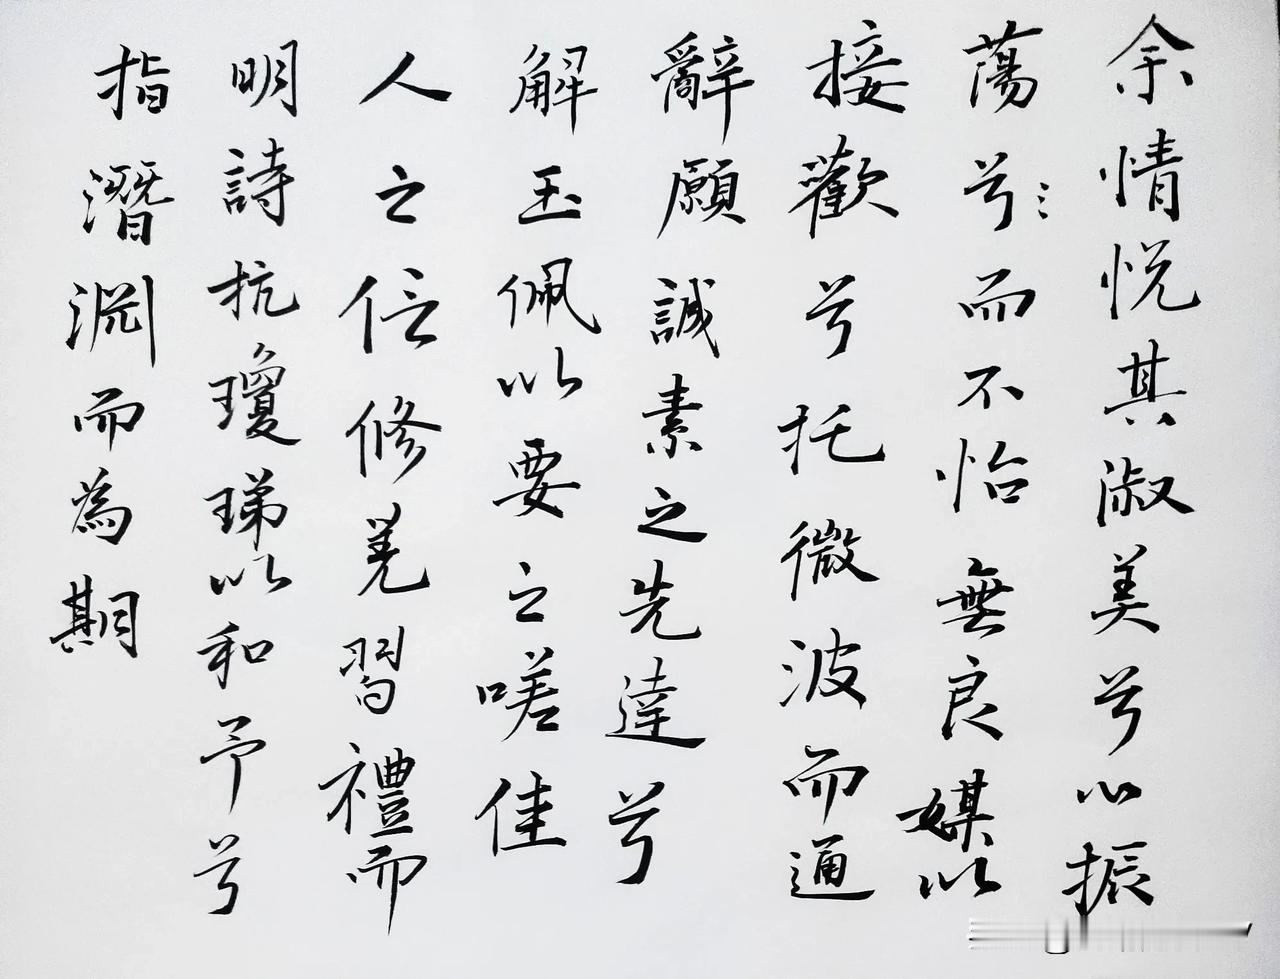 余情悦其淑美兮心振
蕩兮而不怡無良媒以
接歡兮托微波而通
辭願誠素之先達兮
解玉佩以要之嗟佳
人之信修羌習禮而
明詩抗瓊珶以和予兮
指潛淵而為期